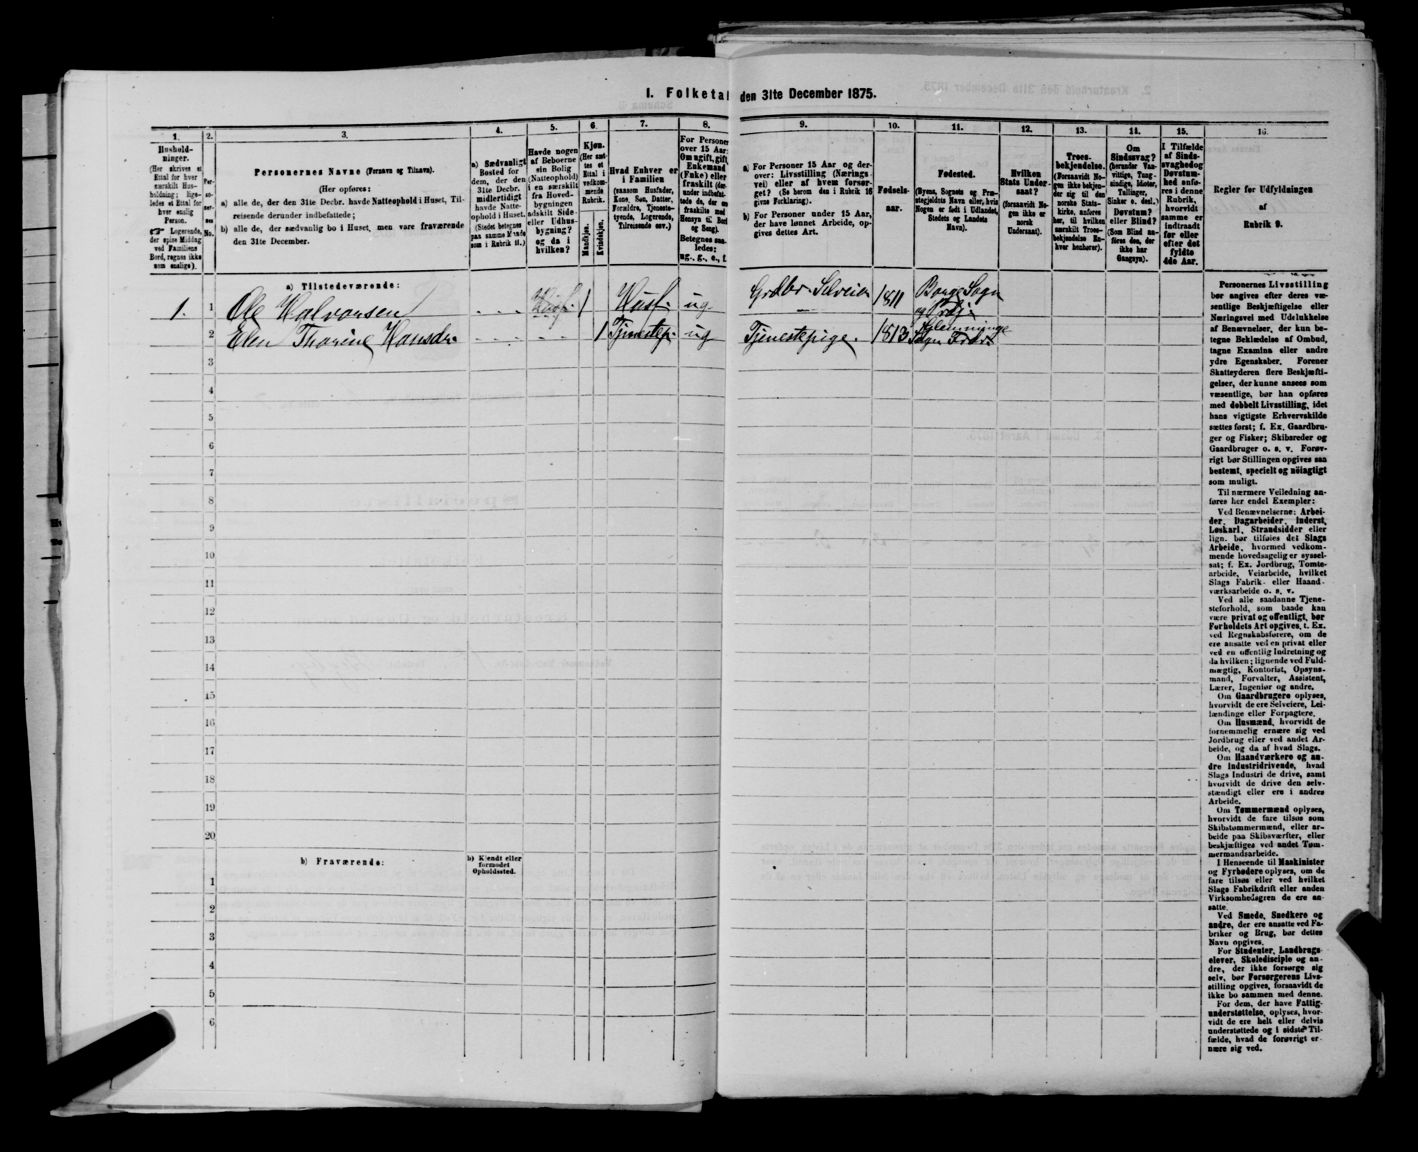 I. Folketal den 31te December 1875.
1. 2. 3. 4. 5. 6. 7. 8. 9. 10. 11. 12. 13. 14. 15. 16.
Hushold-
ninger.
(Her skrives et
Ettal for hver
særskilt Hus-
holdning; lige-
ledes et Ettal for
hver enslig
Person.
☞ Logerende,
der spise Middag
ved Familiens
Bord, regnes ikke
som enslige).
Personernes Navne (Fornavn og Tilnavn).
(Her opføres:
a) alle de, der den 31te Decbr. havde Natteophold i Huset, Til-
reisende derunder indbefattede;
b) alle de, der sædvanlig bo i Huset, men vare fraværende
den 31te December.
a) Sædvanligt
Bosted for
dem, der den
31te Decbr.
midlertidigt
havde Natte-
ophold i Huset.
Havde nogen
af Beboerne
sin Bolig
(Natteophold)
i en særskilt
fra Hoved-
bygningen
adskilt Side-
eller Udhus-
bygning?
og da i
hvilken?
Kjøn.
(Her sæt-
tes et
Ettal i
vedkom-
mende
Rubrik.
Mandkjøn.
Kvindekjøn.
Hvad Enhver er
i Familien
(saasom Husfader,
Kone, Søn, Datter,
Forældre, Tjeneste-
tyende, Logerende,
Tilreisende osv.)
For Personer
over 15 Aar:
Om ugift, gift,
Enkemand
(Enke) eller
fraskilt
Betegnes saa-
ledes:
ug., g., e., f.
a) For Personer 15 Aar og der-
over: Livsstilling (Nærings-
vei) eller af hvem forsør-
get? (Se herom den i Rubrik 16
givne Forklaring).
b) For Personer under 15 Aar,
der have lønnet Arbeide, op-
gives dettes Art.
Fødsels-
aar.
Fødested.
(Byens, Sognets og Præ-
stegjeldets Navn eller, hvis
Nogen er født i Udlandet,
Stedets og Landets
Navn).
Hvilken
Stats Under-
saat?
(forsaavidt No-
gen ikke er
norsk
Undersaat).
Troes-
bekjendelse.
(Forsaavidt No-
gen ikke bekjen-
der sig til den
norske Stats-
kirke, anføres
her, til hvilken
særskilt Troes-
bekjendelse En-
hver henhører).
Om
Sindssvag?
(herunder Van-
vittige, Tung-
sindige, Idioter,
Tullinger,
Sinker o. desl.)
Døvstum?
eller Blind?
(Som Blind an-
føres den, der
ikke har
Gangsyn).
I Tilfælde
af Sinds-
svaghed og
Døvstum-
hed anfø-
res i denne
Rubrik,
hvorvidt
samme er
indtraadt
før eller
efter det
fyldte
4de Aar.
Regler for Udfyldningen
af
Rubrik 9.
a) Tilstedeværende:
1. 1 Ole Halvorsen 1 Husf. ug Grdbr. Selveier 1811 Borge Sogn
og Præj.
2 Elen Thorine Hansdr. 1 Tjenestep. ug Tjenestepige. 1813 Glemminge
Sogn
3
4
5
6
7
8
9
10
11
12
13
14
15
16
17
18
19
20
b) Fraværende:
b) Kjendt eller
formodet
Opholdssted.
1
2
3
4
5
6
Personernes Livsstilling
bør angives efter deres væ-
sentlige Beskjæftigelse eller
Næringsvei med Udelukkelse
af Benævnelser, der kun be-
tegne Beklædelse af Ombud,
tagne Examina eller andre
ydre Egenskaber. Forener
Skatteyderen flere Beskjæfti-
gelser, der kunne ansees som
væsentlige, bør han opføres
med dobbelt Livsstilling, idet
hans vigtigste Erhvervskilde
sættes først; f. Ex. Gaardbru-
ger og Fisker; Skibsreder og
Gaardbruger o. s. v. Forøv-
rigt bør Stillingen opgives saa
bestemt, specielt og nöiagtigt
som muligt.
Til nærmere Veiledning an-
føres her endel Exempler:
Ved Benævnelserne: Arbei-
der, Dagarbeider, Inderst,
Løskarl, Strandsidder eller
lign. bør tilføies det Slags
Arbeide, hvormed vedkom-
mende hovedsagelig er syssel-
sat; f. Ex. Jordbrug, Tomte-
arbeide, Veiarbeide, hvilket
Slags Fabrik- eller Haand-
værksarbeide o. s. v.
Ved alle saadanne Tjene-
steforhold, som baade kan
være privat og offentligt, bør
Forholdets Art opgives, t. Ex.
ved Regnskabsførere, om de
ere ansatte ved en privat eller
ved en offentlig Indretning og
da hvilken; lignende ved Fuld-
mægtig, Kontorist, Opsyns-
mand, Forvalter, Assistent,
Lærer, Ingeniør og andre.
Om Gaardbrugere oplyses,
hvorvidt de ere Selveiere, Lei-
lændinge eller Forpagtere.
Om Husmænd, hvorvidt de
fornemmelig ernære sig ved
Jordbrug eller ved andet Ar-
beide, og da af hvad Slags.
Om Haandværkere og an-
dre Industridrivende, hvad
Slags Industri de drive, samt
hvorvidt de drive den selv-
stændigt eller ere i andres
Arbeide.
Om Tømmermænd oplyses,
hvorvidt de fare tilsøs som
Skibstømmermænd, eller ar-
beide paa Skibsværfter, eller
beskjæftiges ved andet Tøm-
mermandsarbeide.
I Henseende til Maskinister
og Fyrbødere oplyses, om de
fare tilsøs eller ved hvilket
Slags Fabrikdrift eller anden
Virksomhedsgren de ere an-
satte.
Ved Smede, Snedkere og
andre, der ere ansatte ved Fa-
briker og Brug, bør dettes
Navn opgives.
For Studenter, Landbrugs-
elever, Skoledisciple og an-
dre, der ikke forsørge sig
selv, bør Forsørgerens Livs-
stilling opgives, forsaavidt de
ikke bo sammen med denne.
For dem, der have Fattig-
understøttelse, oplyses, hvor-
vidt de ere helt eller delvis
understøttede og i sidste Til-
fælde, hvad de forøvrigt er-
nære sig ved.